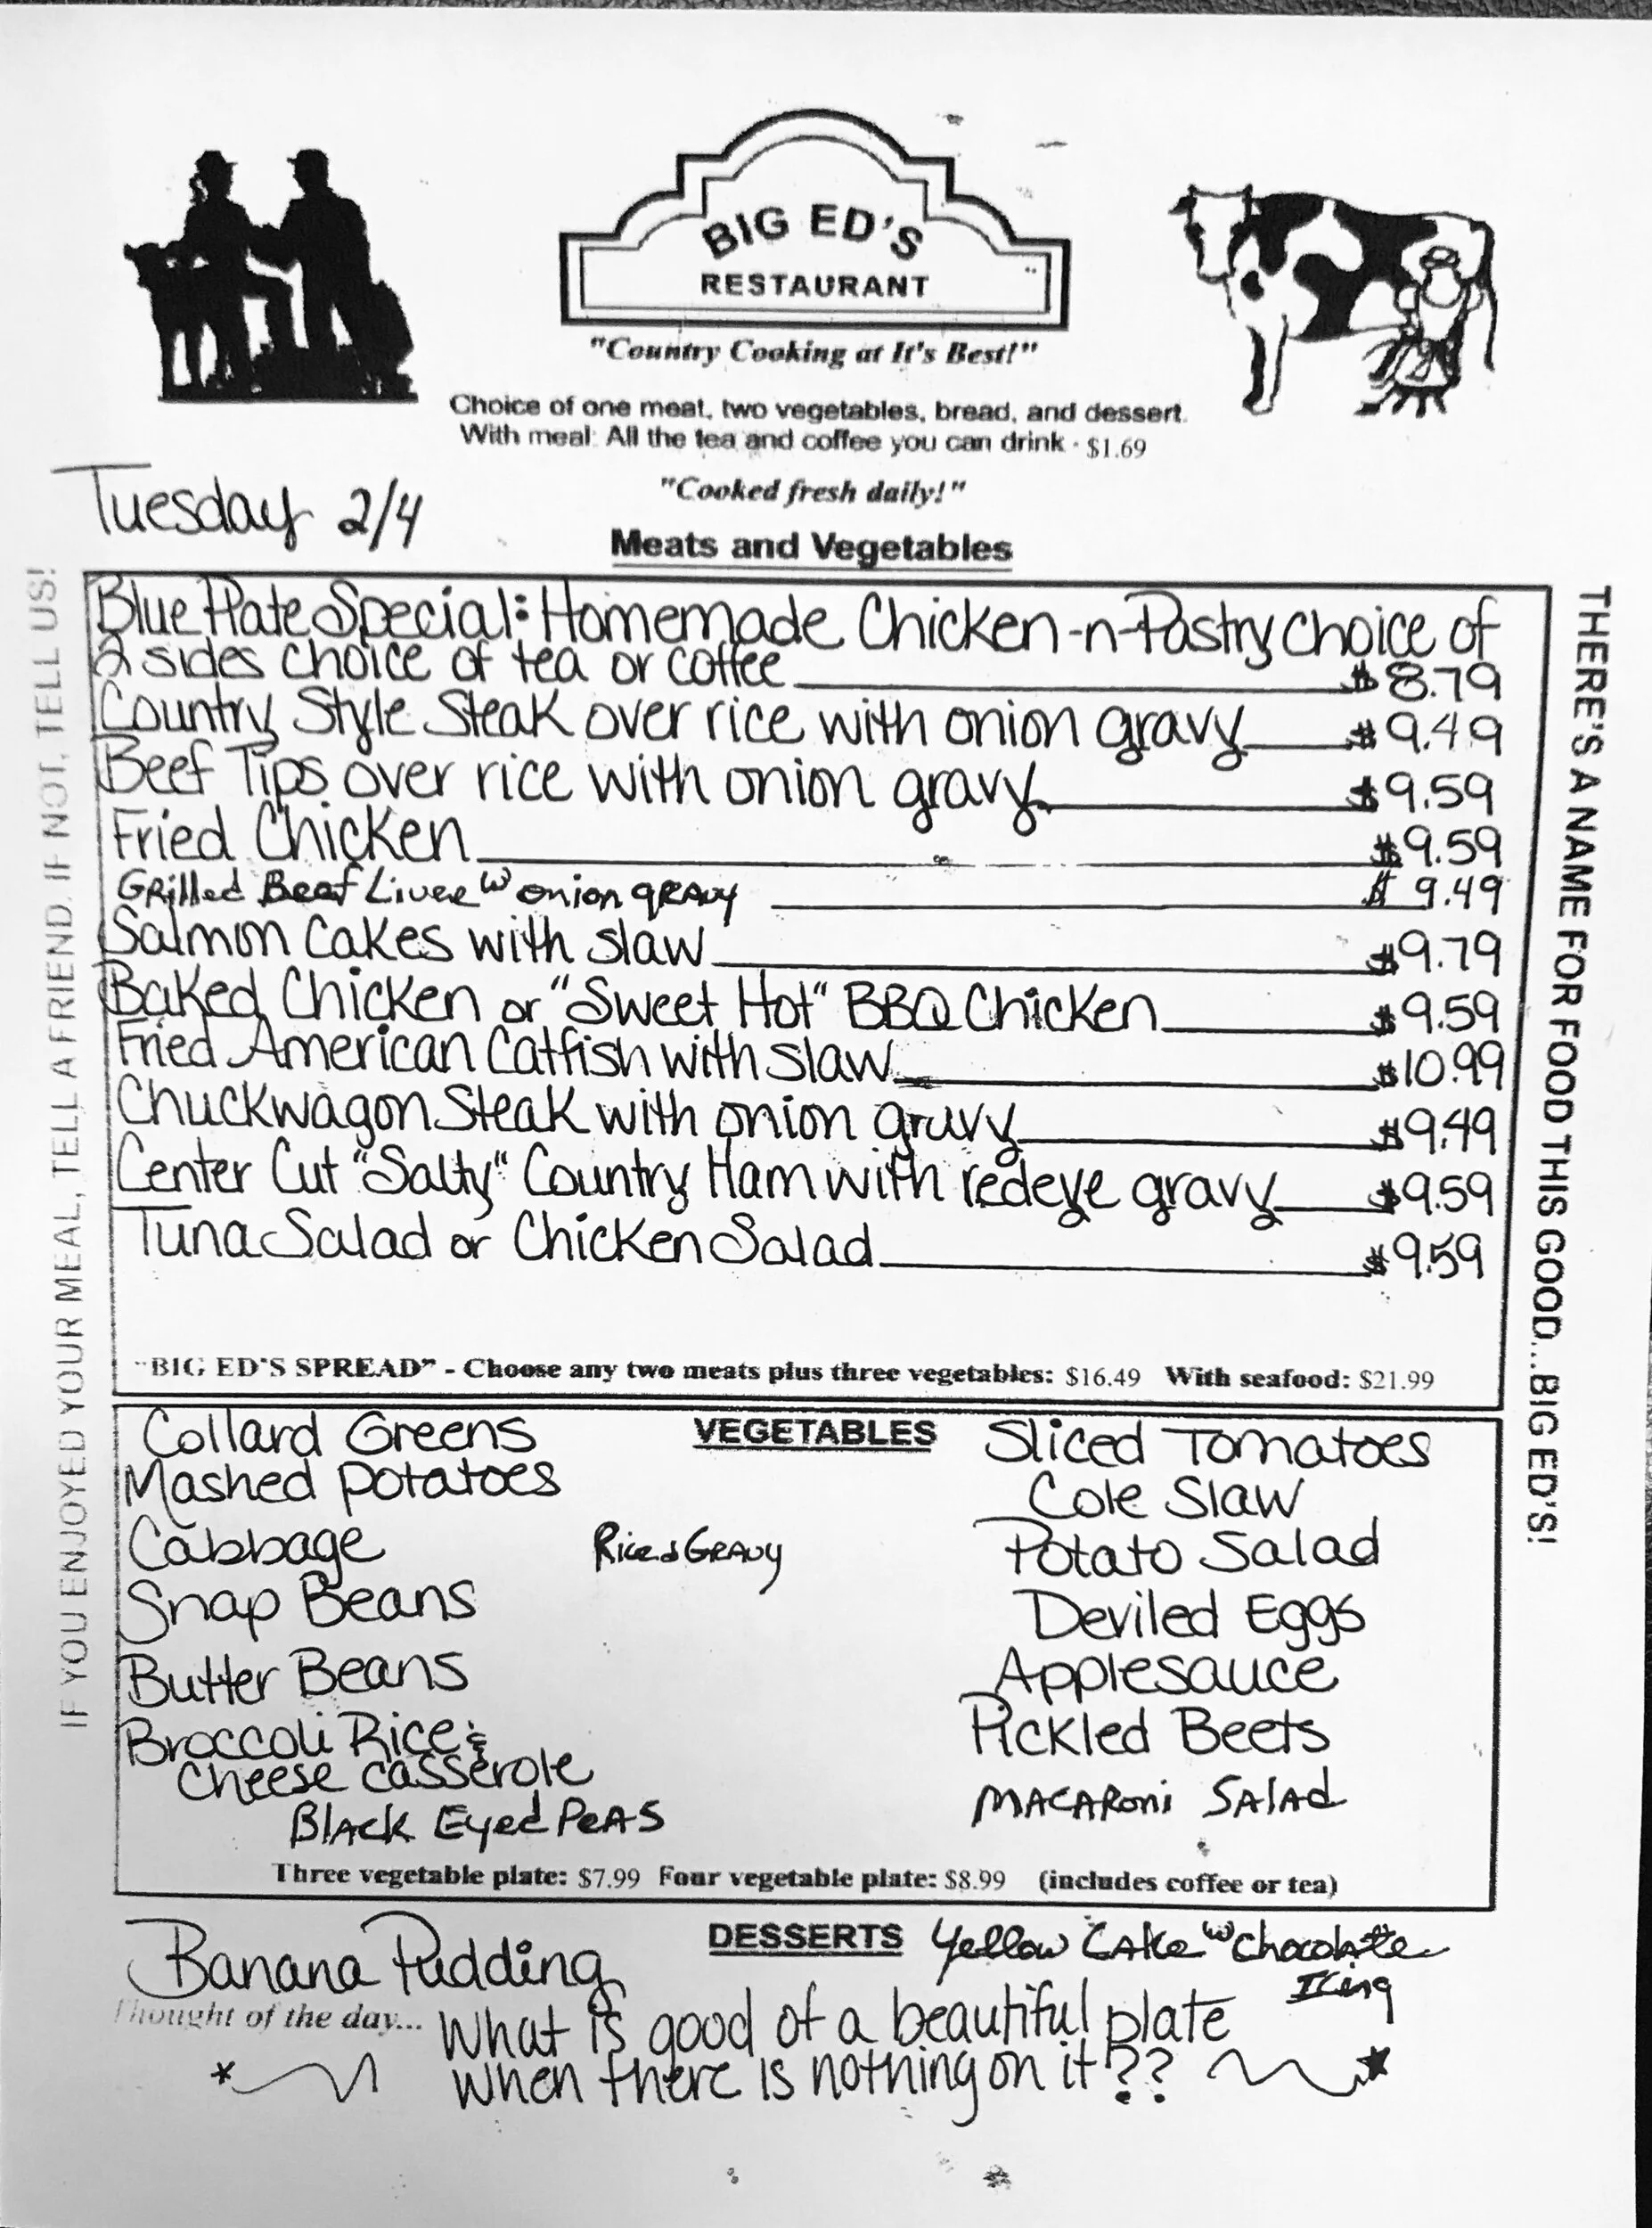 BIG ED'S
RESTAURANT
"Country Cooking at It's Best!"
Choice of one meat, two vegetables, bread, and dessert.
With meal: All the tea and coffee you can drink - $1.69
"Cooked fresh daily!"
Tuesday 2/4
Meats and Vegetables
Blue Plate Special: Homemade Chicken-n-Pastry choice of
2 sides choice of tea or coffee $8.79
Country Style Steak over rice with onion gravy $9.49
Beef Tips over rice with onion gravy $9.59
Fried Chicken $9.59
Grilled Beef Liver w onion gravy $9.49
Salmon Cakes with slaw $9.79
Baked Chicken or "Sweet Hot" BBQ Chicken $9.59
Fried American Catfish with slaw $10.99
Chuckwagon Steak with onion gravy $9.49
Center Cut "Salty" Country Ham with redeye gravy $9.59
Tuna Salad or Chicken Salad $9.59
"BIG ED'S SPREAD" - Choose any two meats plus three vegetables: $16.49 With seafood: $21.99
VEGETABLES
Collard Greens
Mashed potatoes
Cabbage
Snap Beans
Butter Beans
Broccoli Rice &
Cheese casserole
Black Eyed Peas
Rice & Gravy
Sliced Tomatoes
Cole Slaw
Potato Salad
Deviled Eggs
Applesauce
Pickled Beets
Macaroni Salad
Three vegetable plate: $7.99 Four vegetable plate: $8.99 (includes coffee or tea)
DESSERTS
Banana Pudding
Yellow Cake w Chocolate
Icing
Thought of the day... What is good of a beautiful plate
when there is nothing on it??
IF YOU ENJOYED YOUR MEAL, TELL A FRIEND. IF NOT, TELL US!
THERE'S A NAME FOR FOOD THIS GOOD...BIG ED'S!